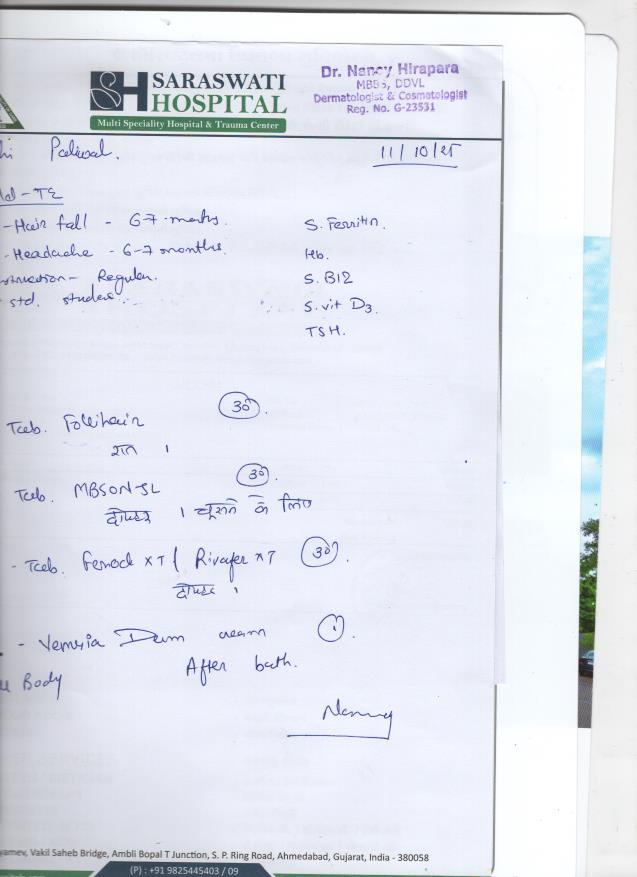 SH SARASWATI
HOSPITAL
Multi Speciality Hospital & Trauma Center
Dr. Nancy Hirapara
MBBS, DDVL
Dermatologist & Cosmetologist
Reg. No. G-23531
hi Paliwal.
11/10/25
- Hair fall - 6-7 months.
- Headache - 6-7 months.
- Regular.
std. student
S. Ferritin.
Hb.
S. B12
S. vit D3
TSH.
Tab. Follihair 30
रात ।
Tab. MBSON-SL 30
दोपहर । चूसने के लिए
- Tab. XT / XT 30
दोपहर ।
- cream 1
After bath.
Body
Nancy
yamev, Vakil Saheb Bridge, Ambli Bopal T Junction, S. P. Ring Road, Ahmedabad, Gujarat, India - 380058
(P) : +91 9825445403 / 09